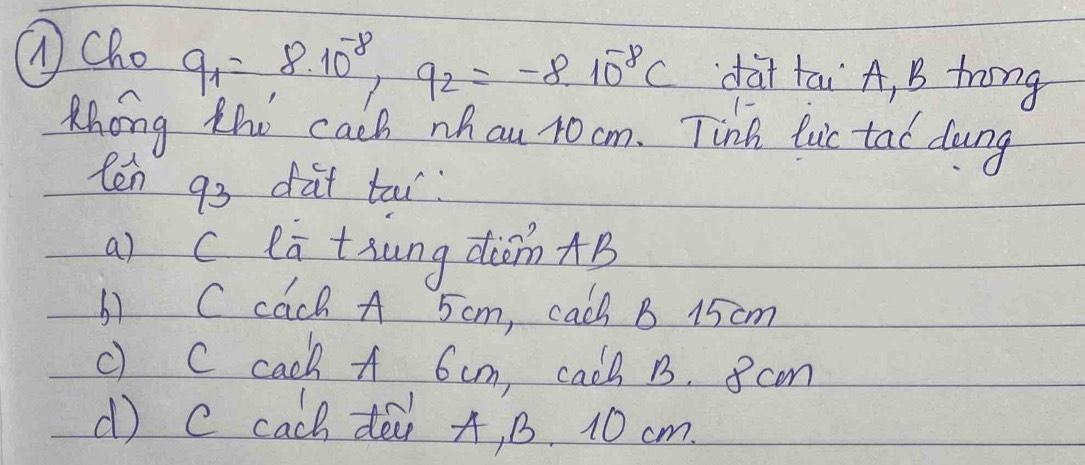 ① Cho q₁ = 8.10⁻⁸, q₂ = -8.10⁻⁸C đặt tại A, B trong
không khí cách nhau 10 cm. Tính lực tác dụng
lên q₃ đặt tại:
a) C là trung điểm AB
b) C cách A 5cm, cách B 15cm
c) C cách A 6cm, cách B. 8cm
d) C cách đều A, B. 10 cm.